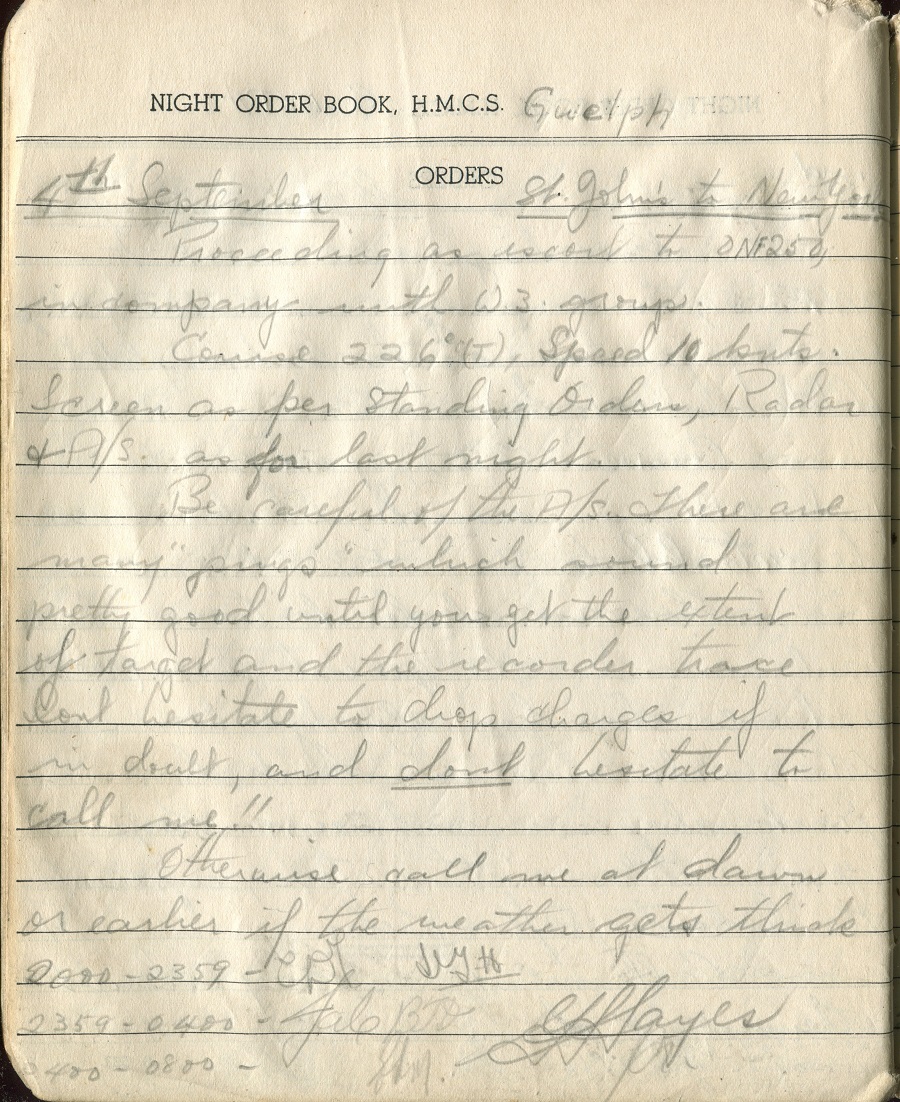 NIGHT ORDER BOOK, H.M.C.S. Guelph
ORDERS
4th September St. John's to New York
Proceeding as escort to ONF252,
in company with W.3. group.
Course 226°(T), Speed 10 knts.
Screen as per Standing Orders, Radar
& A/S. as for last night.
Be careful of the A/S. There are
many "pings" which sound
pretty good until you get the extent
of target and the recorder trace
Dont hesitate to drop charges if
in doubt, and dont hesitate to
call me!!
Otherwise call me at dawn
or earlier if the weather gets thick
2000-2359 -
2359-0400 -
0400-0800 -
GHHayes